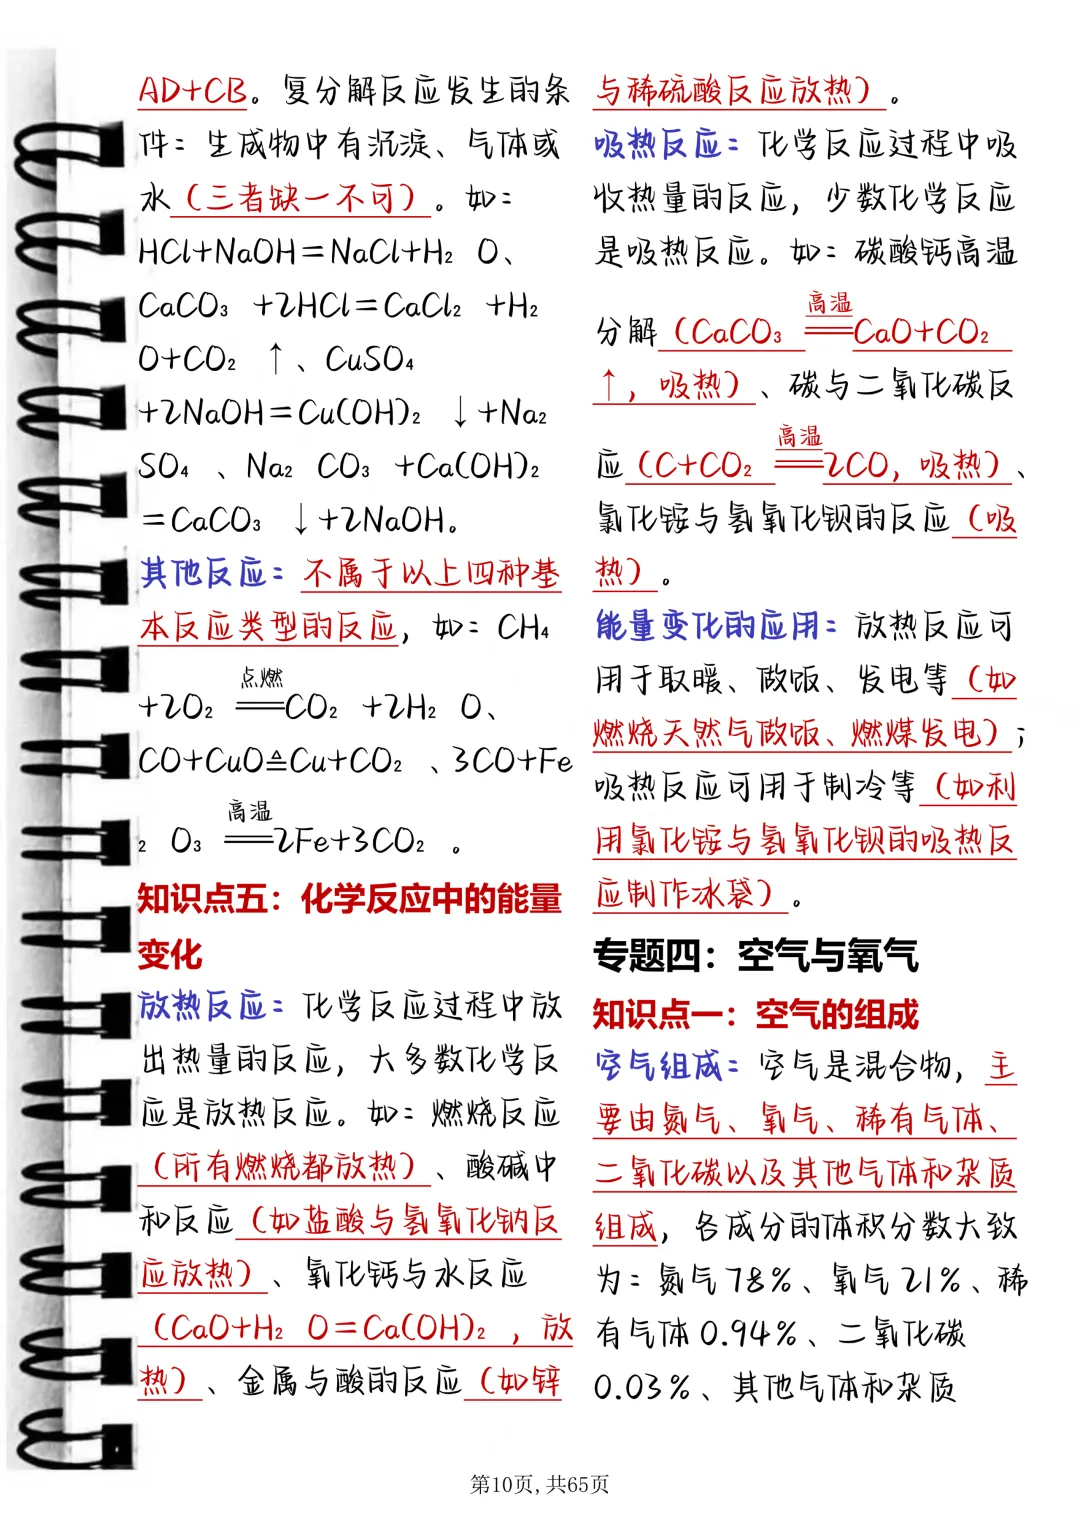 AD+CB。复分解反应发生的条
件：生成物中有沉淀、气体或
水（三者缺一不可）。如：
HCl+NaOH＝NaCl+H₂ O、
CaCO₃ +2HCl＝CaCl₂ +H₂
O+CO₂ ↑、CuSO₄
+2NaOH＝Cu(OH)₂ ↓+Na₂
SO₄ 、Na₂ CO₃ +Ca(OH)₂
＝CaCO₃ ↓+2NaOH。
其他反应：不属于以上四种基
本反应类型的反应，如：CH₄
点燃
+2O₂ ══CO₂ +2H₂ O、
CO+CuO≜Cu+CO₂ 、3CO+Fe
高温
₂ O₃ ══2Fe+3CO₂ 。
知识点五：化学反应中的能量
变化
放热反应：化学反应过程中放
出热量的反应，大多数化学反
应是放热反应。如：燃烧反应
（所有燃烧都放热）、酸碱中
和反应（如盐酸与氢氧化钠反
应放热）、氧化钙与水反应
（CaO+H₂ O＝Ca(OH)₂ ，放
热）、金属与酸的反应（如锌
与稀硫酸反应放热）。
吸热反应：化学反应过程中吸
收热量的反应，少数化学反应
是吸热反应。如：碳酸钙高温
高温
分解（CaCO₃ ══CaO+CO₂
↑，吸热）、碳与二氧化碳反
高温
应（C+CO₂ ══2CO，吸热）、
氯化铵与氢氧化钡的反应（吸
热）。
能量变化的应用：放热反应可
用于取暖、做饭、发电等（如
燃烧天然气做饭、燃煤发电）；
吸热反应可用于制冷等（如利
用氯化铵与氢氧化钡的吸热反
应制作冰袋）。
专题四：空气与氧气
知识点一：空气的组成
空气组成：空气是混合物，主
要由氮气、氧气、稀有气体、
二氧化碳以及其他气体和杂质
组成，各成分的体积分数大致
为：氮气 78％、氧气 21％、稀
有气体 0.94％、二氧化碳
0.03％、其他气体和杂质
第10页,共65页